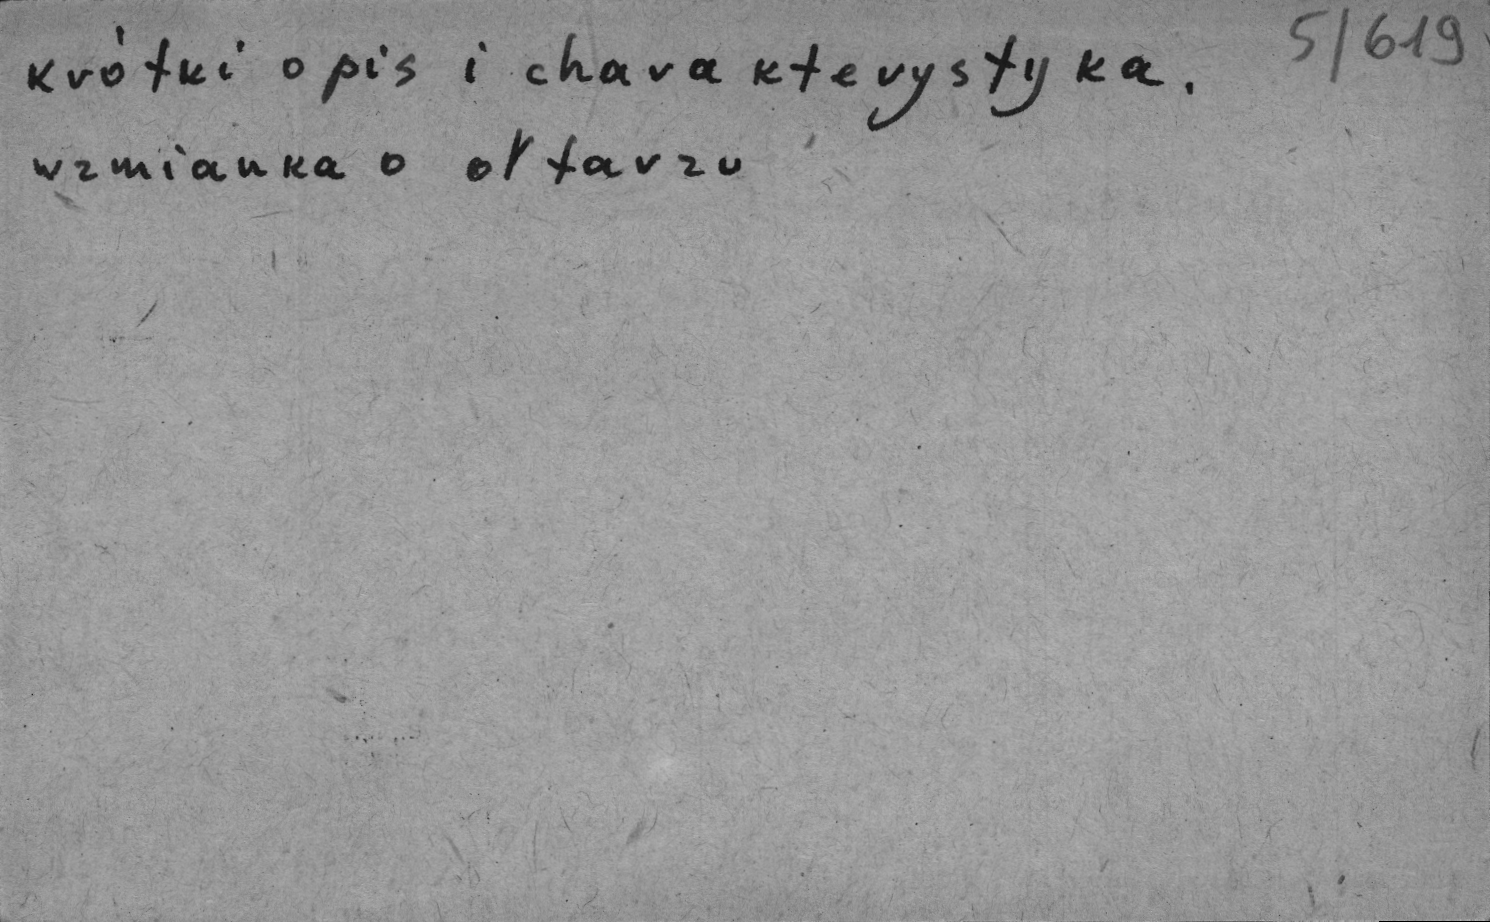 krótki opis i charakterystyka.
wzmianka o ołtarzu
5/619